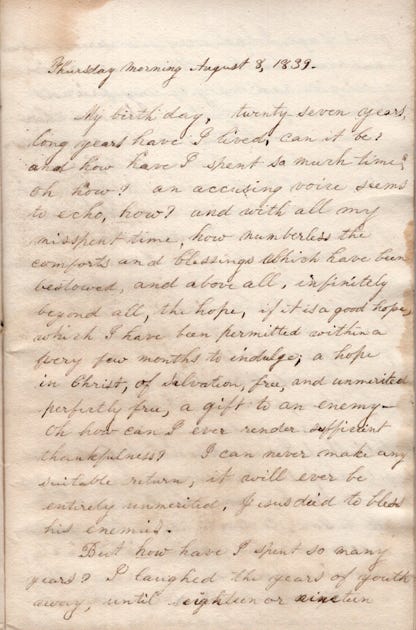 Thursday morning August 8, 1839.
My birth day, twenty seven years,
long years have I lived, can it be?
and how have I spent so much time,
oh how? an accusing voice seems
to echo, how? and with all my
misspent time, how numberless the
comforts and blessings which have been
bestowed, and above all, infinitely
beyond all, the hope, if it is a good hope,
which I have been permitted within a
very few months to indulge; a hope
in Christ, of salvation, free, and unmerited
perfectly free, a gift to an enemy—
Oh how can I ever render sufficient
thankfulness? I can never make any
suitable return, it will ever be
entirely unmerited, Jesus died to bless
his enemies.
But how have I spent so many
years? I laughed the years of youth
away, until eighteen or nineteen